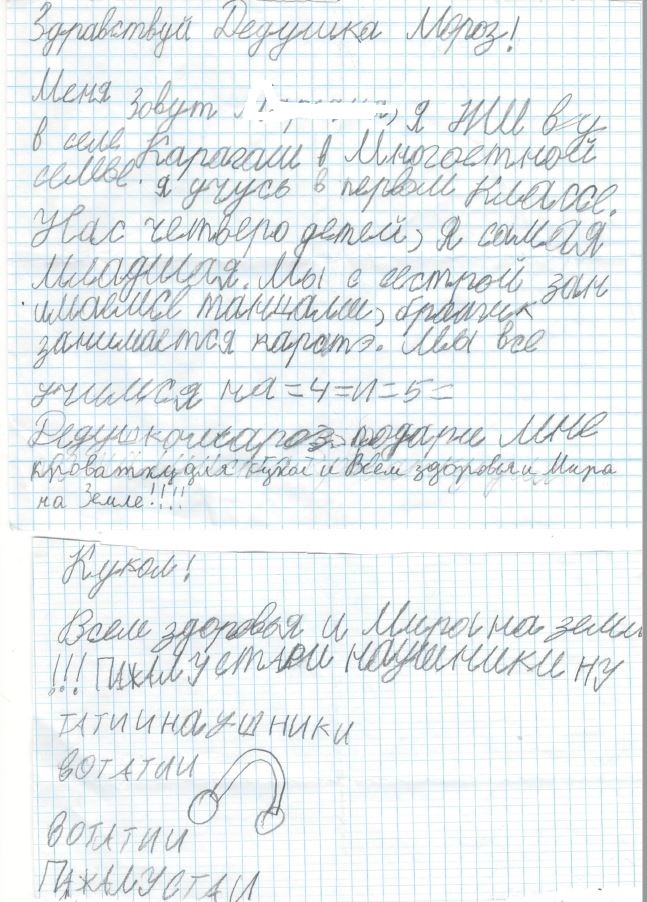 Здравствуй Дедушка Мороз!
Меня зовут я жи ву
в селе Карагаш в Многоетной
семье. я учусь в первом классе.
Нас четверо детей, я самая
младшая. Мы с сестрой зан
имаемся танцами, братик
занимается каратэ. Мы все
учимся на =4=и=5=
подари мне
кроватку для и Всем здоровья и Мира
на Земле!!!!
Кукол!
Всем здоровья и Мира на земли
!!! ПАЖАЛУСТА И наушники ну
ТАТИИ НАУШНИКИ
ВОТАТИИ
ВОТАТИИ
ПАЖАЛУСТА И